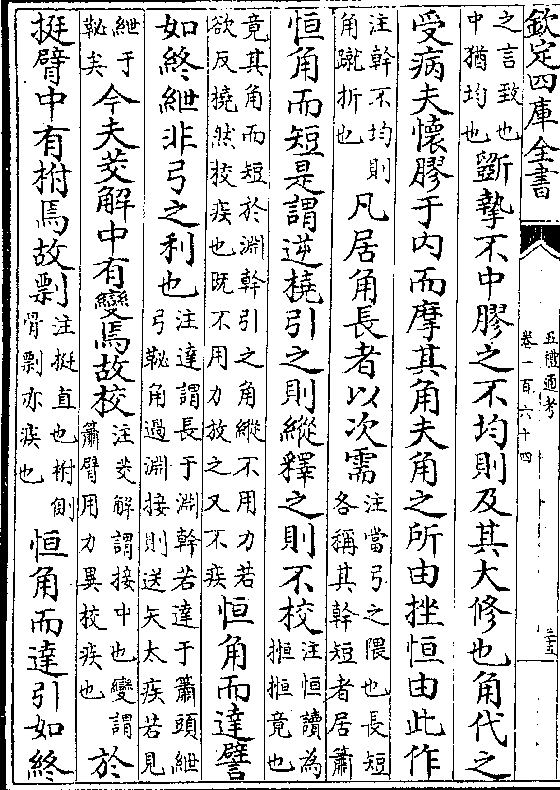 欽定四庫全書
五禮通考
卷一百六十四
之言致也
中猶均也
斵摯不中膠之不均則及其大修也角代之
受病夫懷膠于内而摩其角夫角之所由挫恒由此作
注幹不均則
角蹴折也
凡居角長者以次需
注當弓之隈也長短
各稱其幹短者居簫
恒角而短是謂逆橈引之則縱釋之則不校
注恒讀為
㮓㮓竟也
竟其角而短於淵幹引之角縱不用力若
欲反撓然校疾也既不用力放之又不疾
恒角而達譬
如終紲非弓之利也
注達謂長于淵幹若達于簫頭紲
弓䪐角過淵接則送矢太疾若見
紲于
䪐矣
今夫茭解中有變焉故校
注茭解謂接中也變謂
簫臂用力異校疾也
於
挺臂中有柎焉故剽
注挺直也柎側
骨剽亦疾也
恒角而達引如終